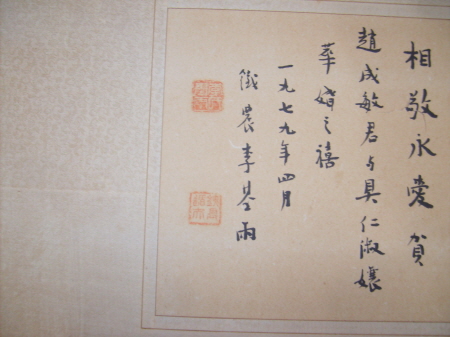 相敬永愛賀
趙成敏君与具仁淑孃
華婚之禧
一九七九年四月
鐵農李基雨